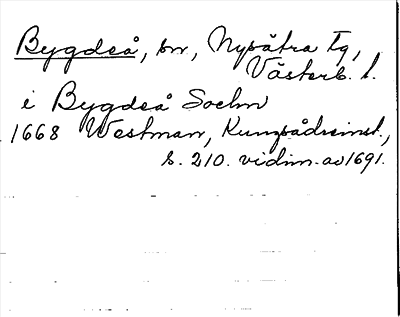 Bygdeå, sn, Nysätra tg,
Västerb. l.
i Bygdeå Sochn
1668 Westman, Kungsådreinst.,
s. 210. vidim. av 1691.